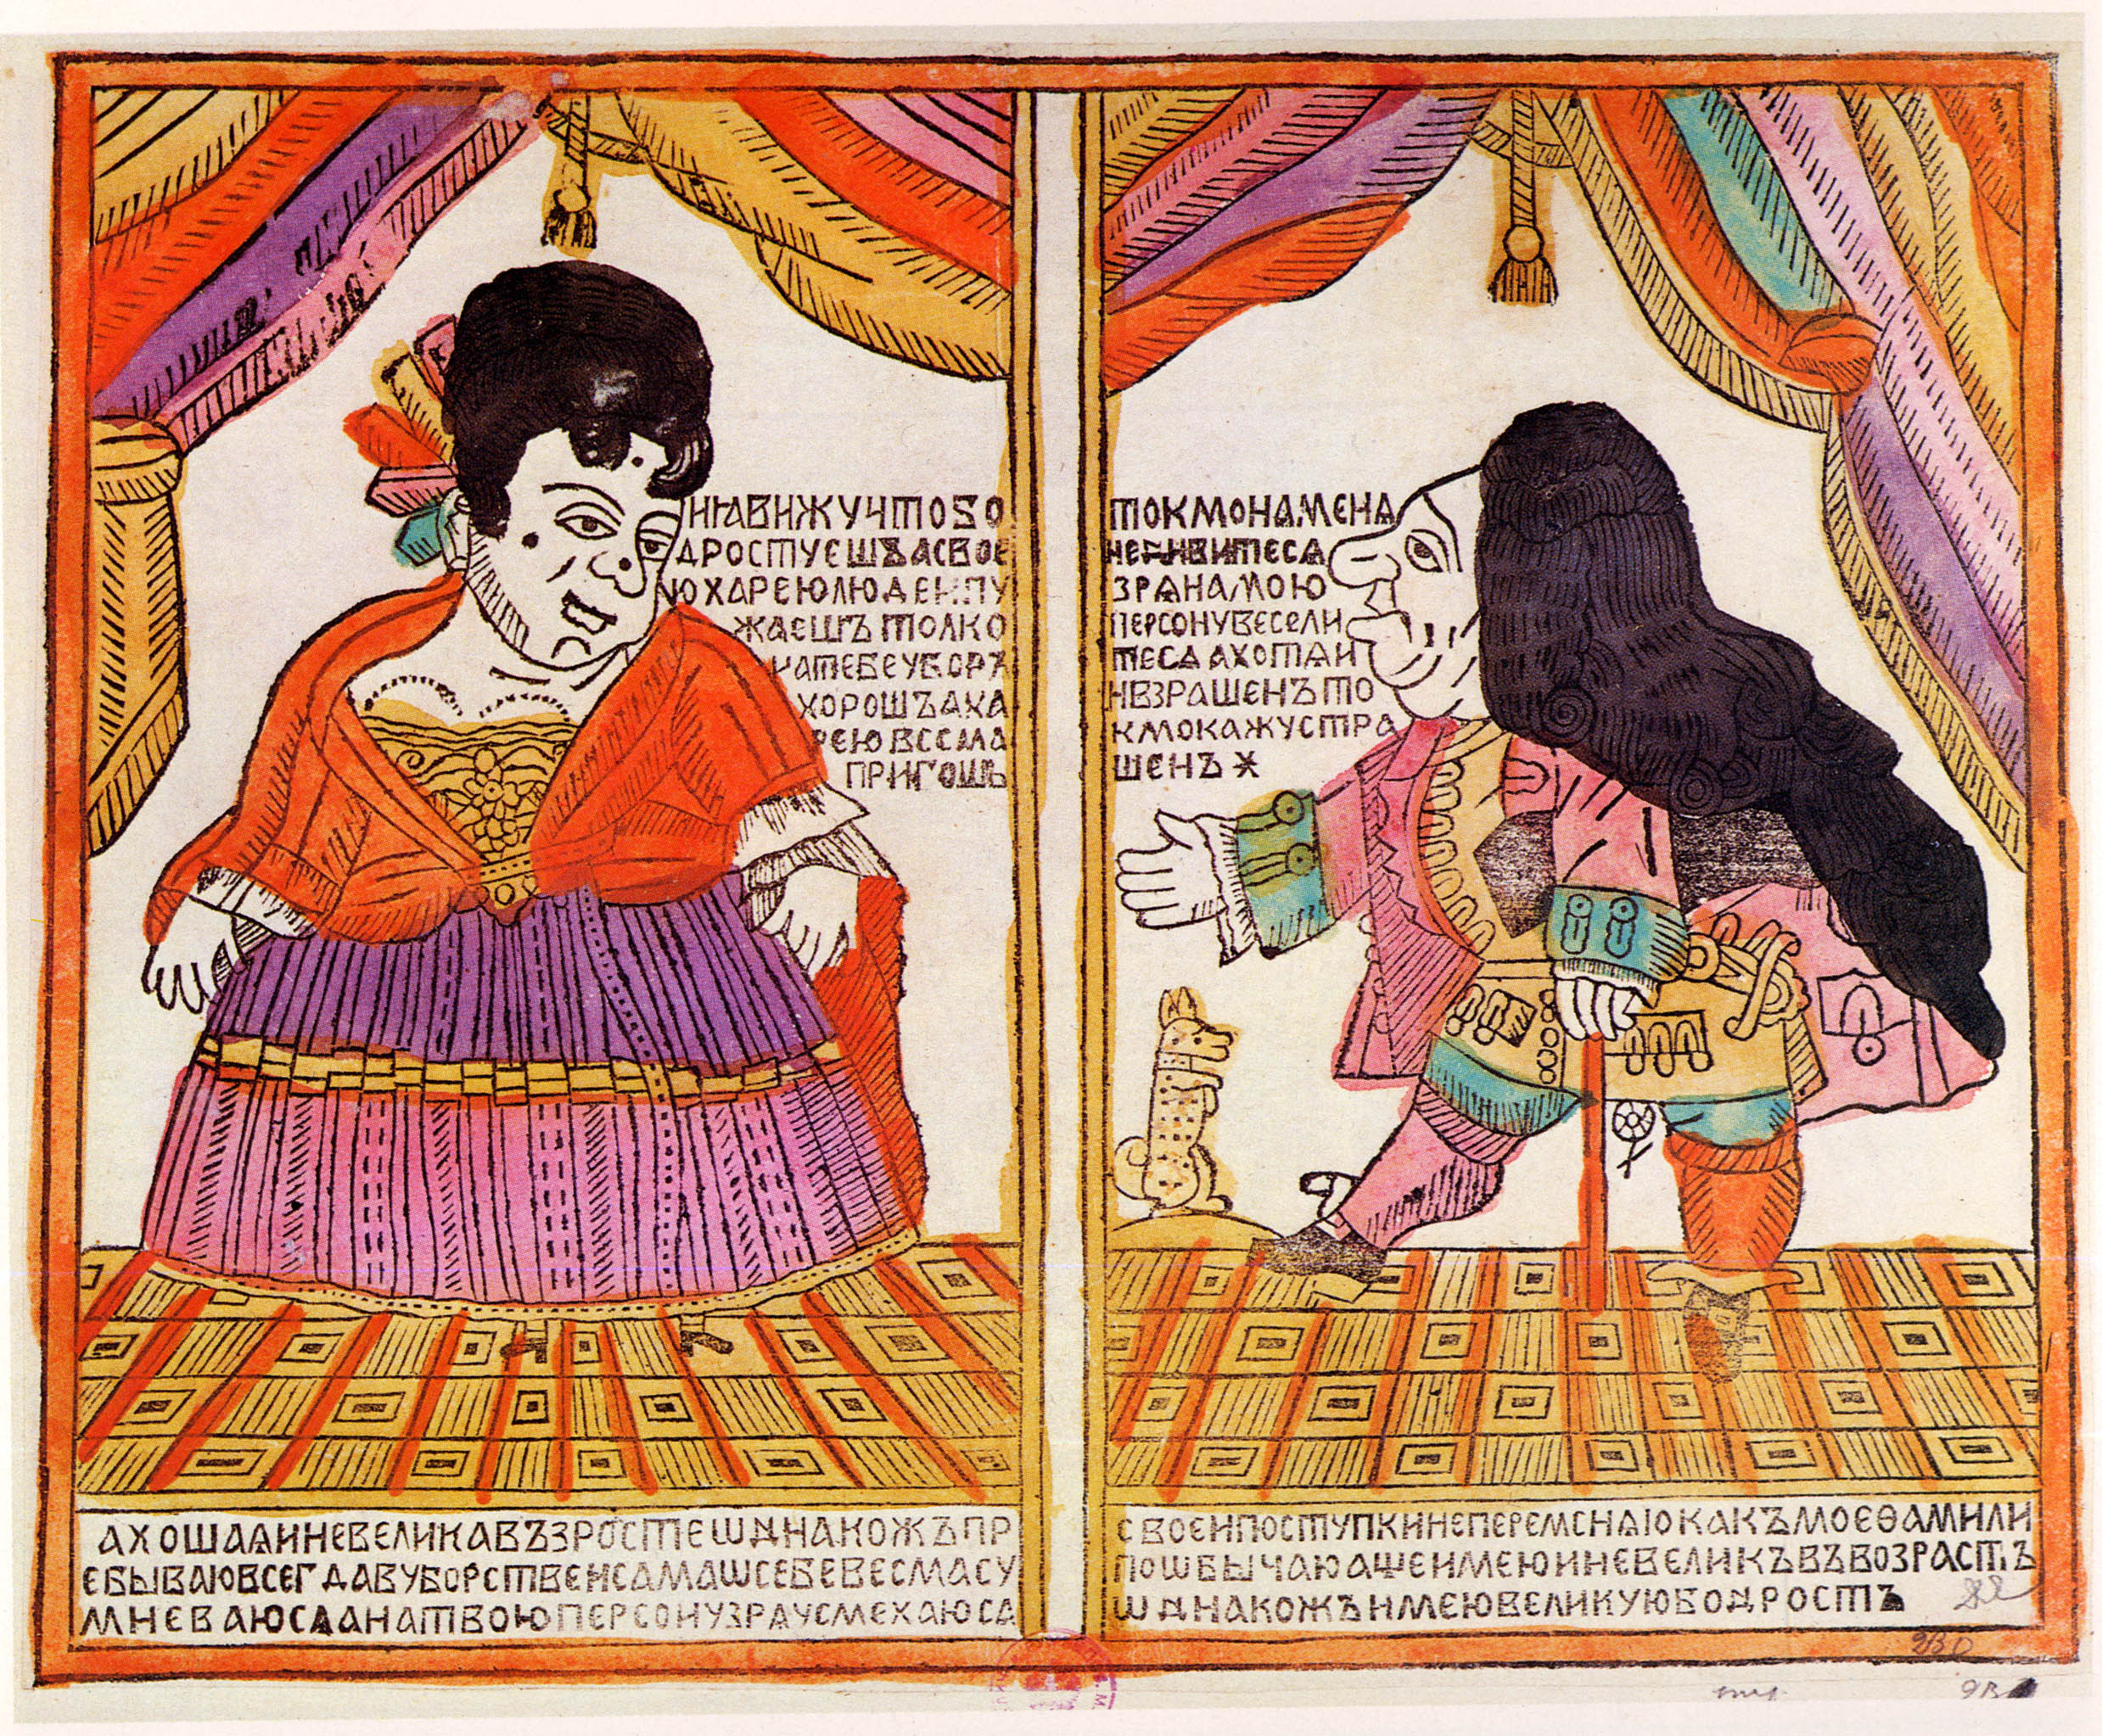 И ꙖВИЖУ ЧТО БО
ДРОСТУЕШЪ А СВОЕ
Ю ХАРЕЮ ЛЮДЕИ ПУ
ЖАЕШЪ ТОЛКО
НА ТЕБЕ УБОРЪ
ХОРОШЪ А ХА
РЕЮ ВССМА
ПРИГОШЪ
ТОКМО НА МЕНѦ
НЕ ДИВИТЕСѦ
ЗРѦ НА МОЮ
ПЕРСОНУ ВЕСЕЛИ
ТЕСѦ А ХОТѦ И
НВЗРАШЕНЪ ТО
КМО КАЖУ СТРА
ШЕНЪ *
А ХОШАѦ И НЕВЕЛИКА ВЪЗРОСТЕ ѠДНАКОЖЪ ПР
ЕБЫВАЮ ВСЕГДА В УБОРСТВЕ И САМА Ѡ СЕБЕ ВЕСМА СУ
МНЕВАЮСѦ А НА ТВОЮ ПЕРСОНУ ЗРѦ УСМЕХАЮСѦ
СВОЕИ ПОСТУПКИ НЕПЕРЕМСНѦЮ КАКЪ МОЕ ѲАМИЛИ
ПО ѠБЫЧАЮ АЩЕ ИМЕЮ И НЕВЕЛИКЪ ВЪВОЗРАСТЪ
ѠДНАКОЖЪ ИМЕЮ ВЕЛИКУЮ БОДРОСТЬ